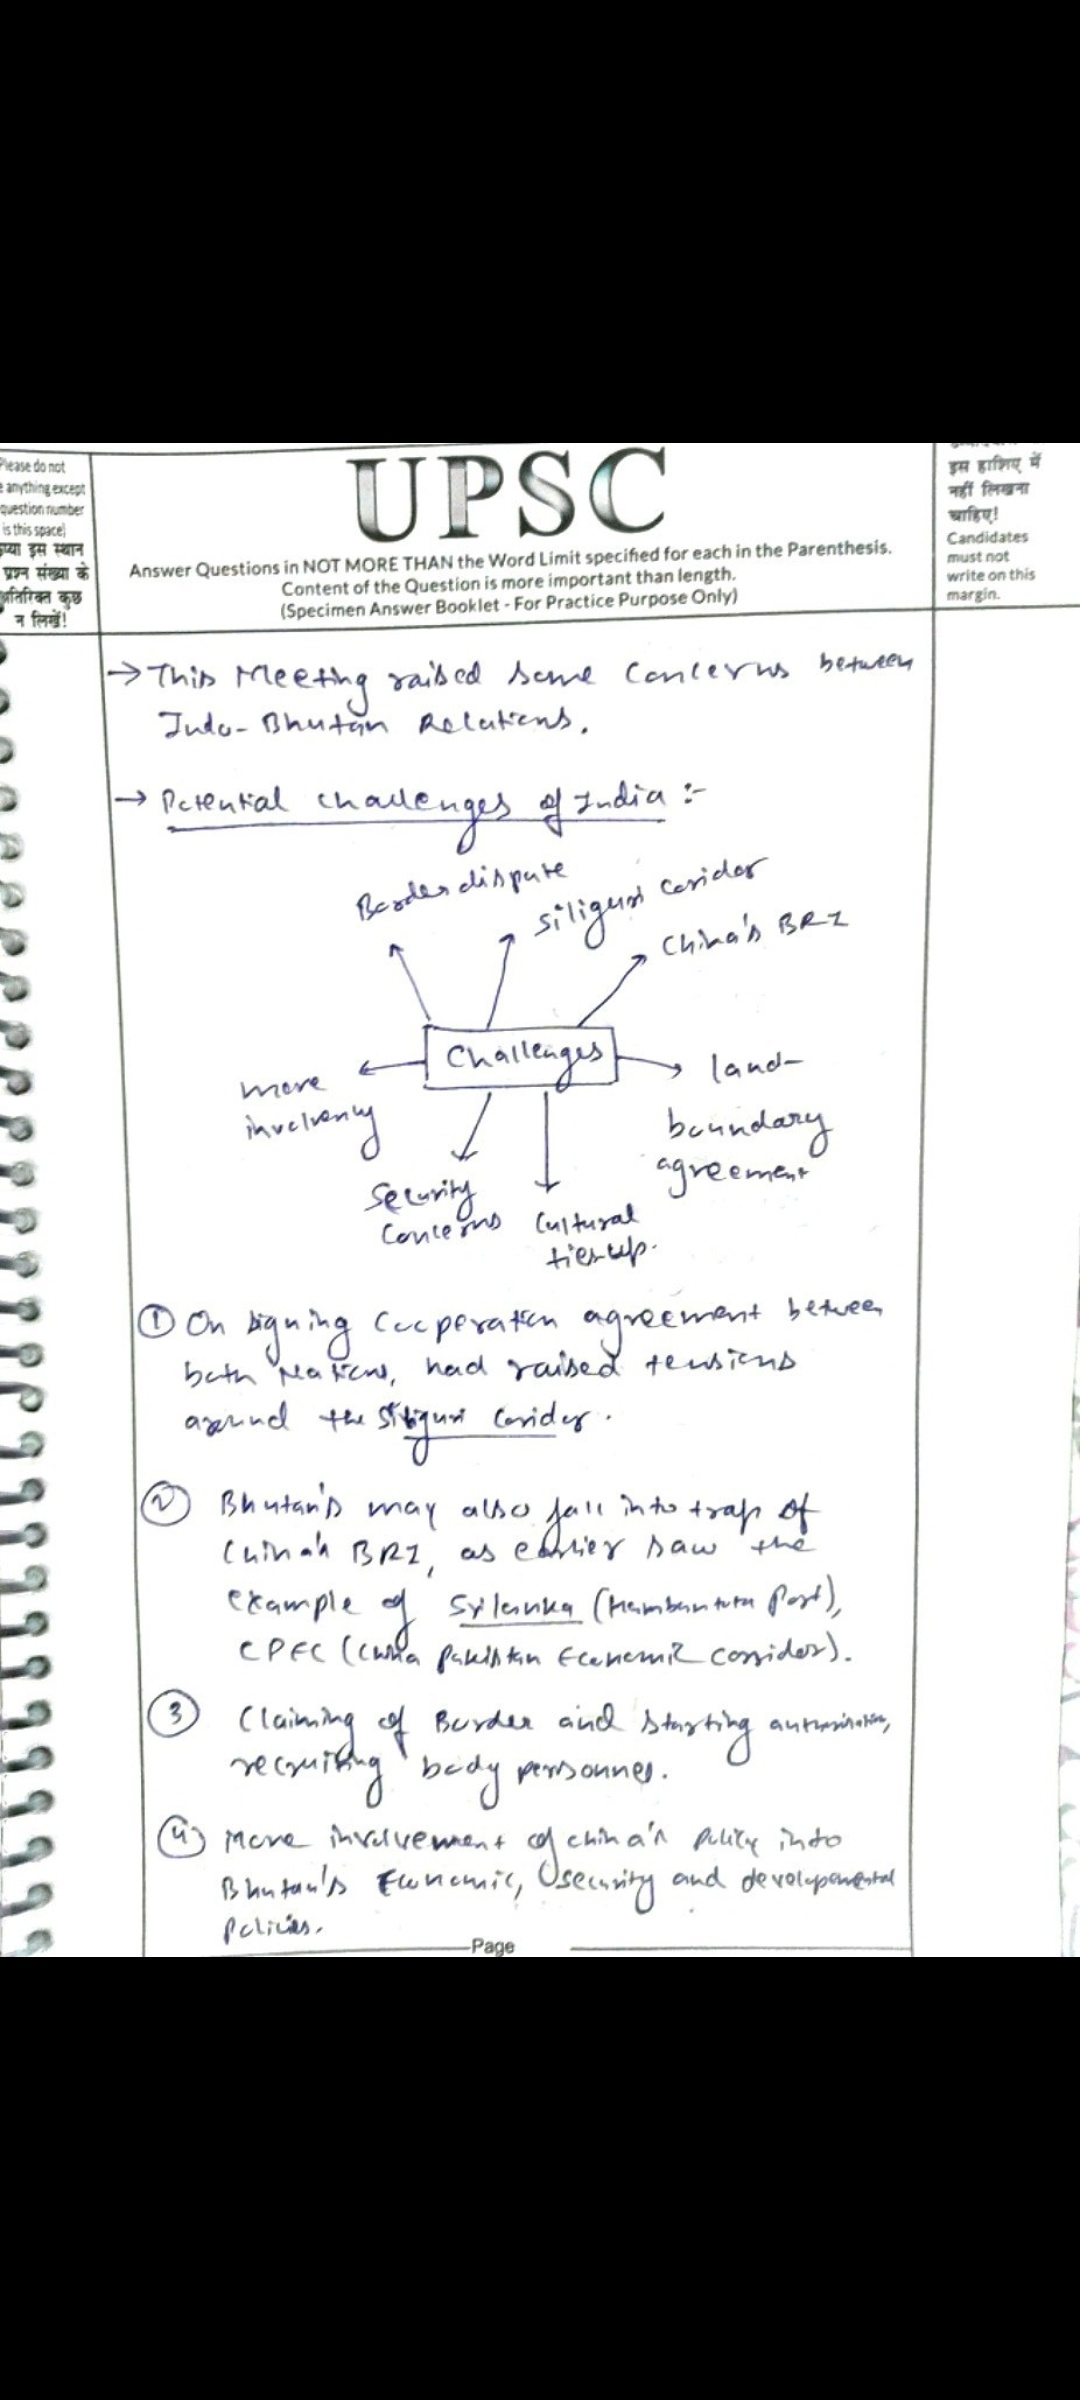 Please do not
anything except
question number
is this space)
इस स्थान
प्रश्न संख्या के
अतिरिक्त कुछ
न लिखें!
UPSC
Answer Questions in NOT MORE THAN the Word Limit specified for each in the Parenthesis.
Content of the Question is more important than length.
(Specimen Answer Booklet - For Practice Purpose Only)
इस हाशिए में
नहीं लिखना
चाहिए!
Candidates
must not
write on this
margin.
→ This Meeting raised some Concerns between
Indo-Bhutan Relations.
→ Potential challenges of India :-
Border dispute
Siliguri Coridor
China's BRI
Challenges
more
involvency
land-
boundary
agreement
Security
Concerns
Cultural
ties-up.
① On signing Cooperation agreement between
both Nations, had raised tensions
around the Siliguri Coridor.
② Bhutan's may also fall into trap of
China's BRI, as earlier saw the
example of Srilanka (Hambantota Port),
CPEC (China Pakistan Economic corridor).
③ Claiming of Border and starting
recruiting body personnel.
④ More involvement of china's Policy into
Bhutan's Economic, security and developmental
Policies.
Page